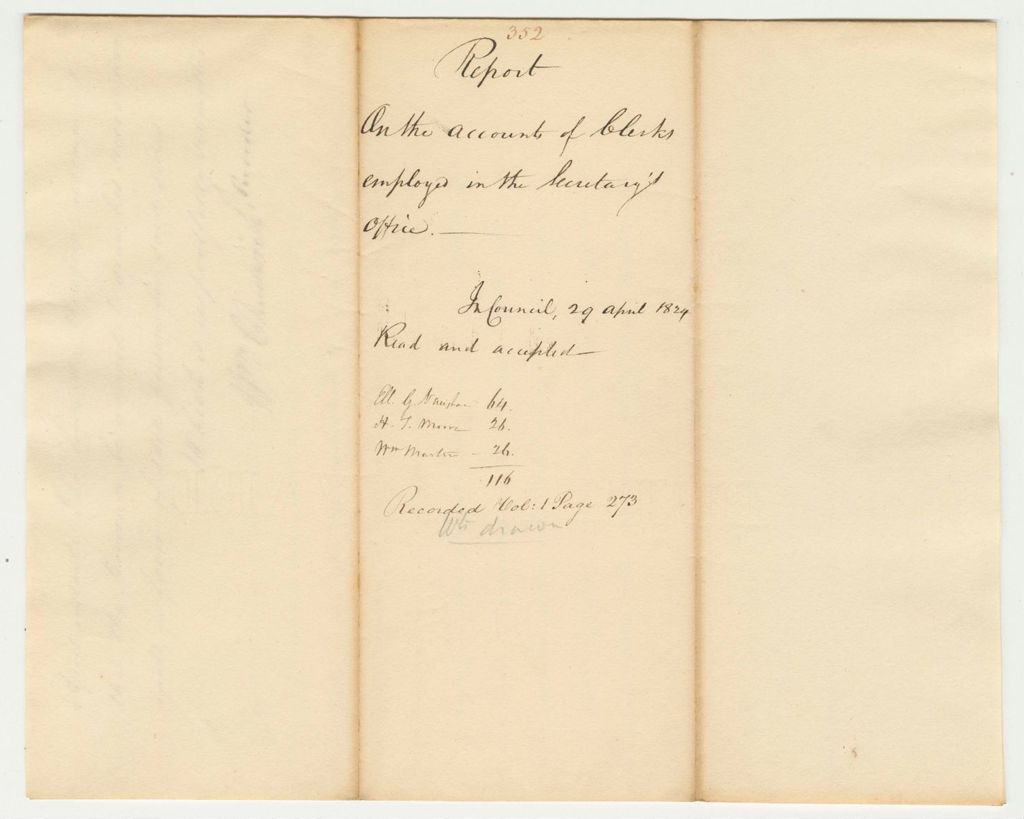 352
Report
On the accounts of Clerks
employed in the Secretary's
Office. —
In Council, 29 April 1824
Read and accepted —
G. 64.
H. T. Moore 26.
Wm Martin - 26.
116
Recorded Vol: 1 Page 273
Wts drawn